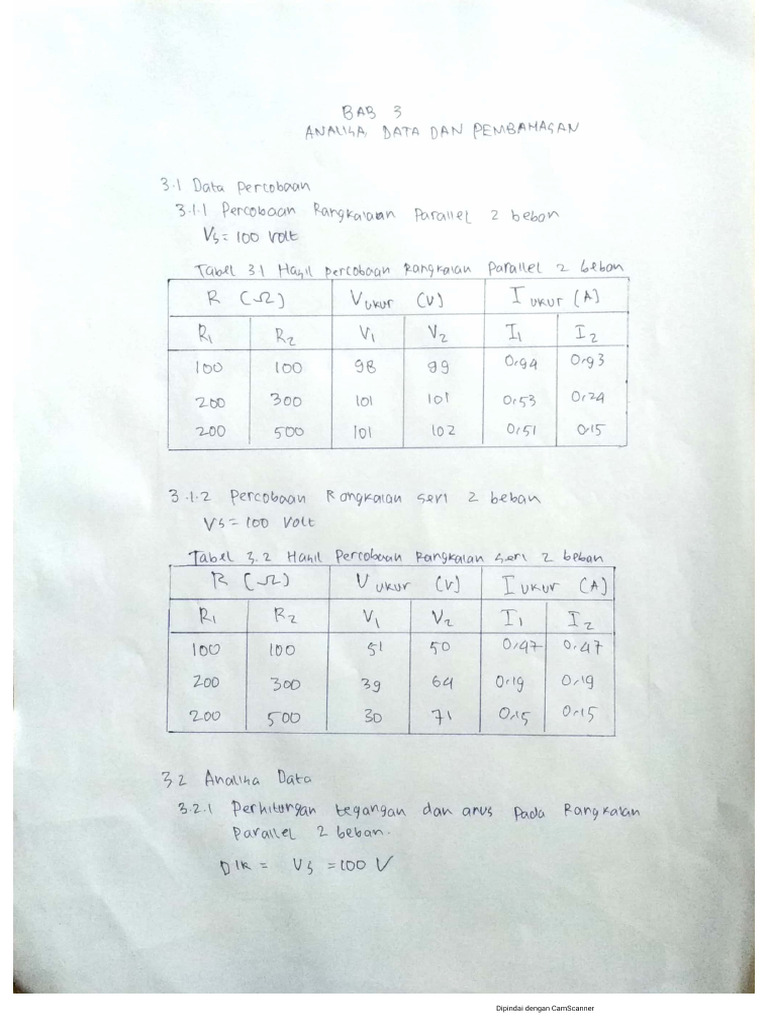 BAB 3
ANALISA DATA DAN PEMBAHASAN
3.1 Data Percobaan
3.1.1 Percobaan Rangkaian Parallel 2 beban
Vs = 100 Volt
Tabel 3.1 Hasil percobaan Rangkaian Parallel 2 beban
R (Ω) V ukur (V) I ukur (A)
R1 R2 V1 V2 I1 I2
100 100 98 99 0,94 0,93
200 300 101 101 0,53 0,24
200 500 101 102 0,51 0,15
3.1.2 Percobaan Rangkaian seri 2 beban
Vs = 100 Volt
Tabel 3.2 Hasil Percobaan Rangkaian seri 2 beban
R (Ω) V ukur (V) I ukur (A)
R1 R2 V1 V2 I1 I2
100 100 51 50 0,47 0,47
200 300 39 64 0,19 0,19
200 500 30 71 0,15 0,15
3.2 Analisa Data
3.2.1 Perhitungan tegangan dan arus pada Rangkaian
Parallel 2 beban.
Dik = Vs = 100 V
Dipindai dengan CamScanner